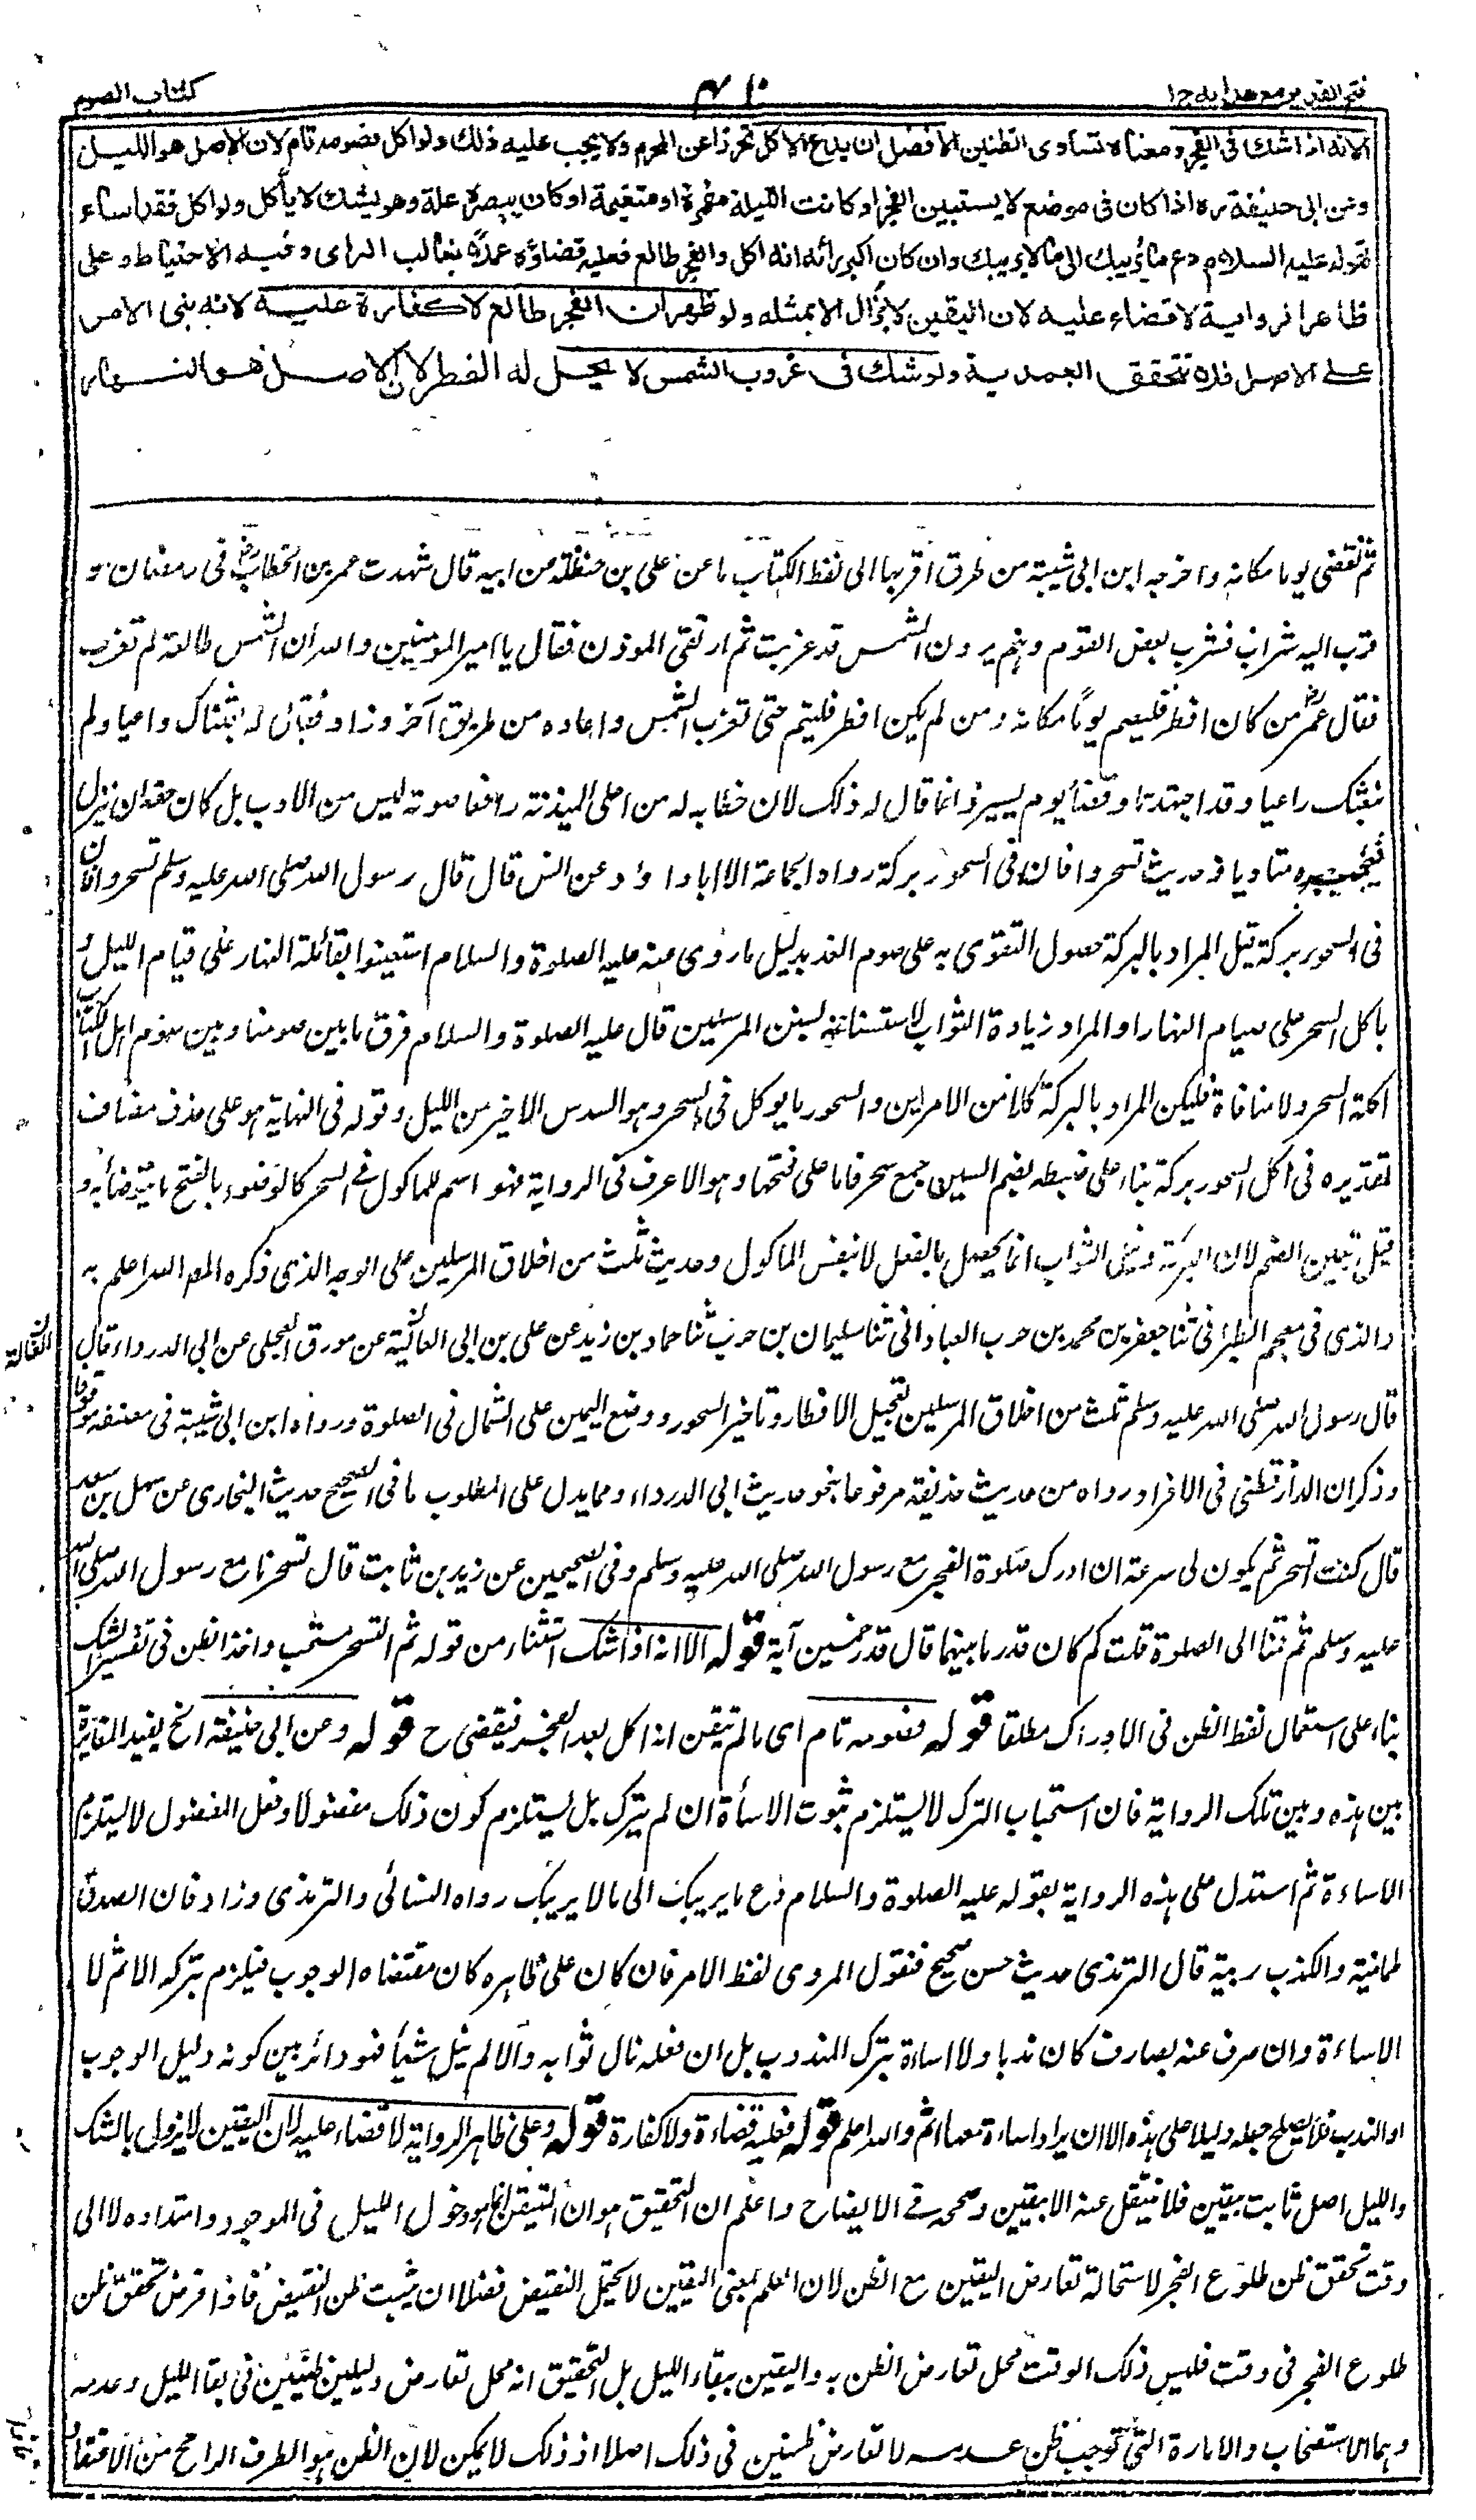 فتح القدير مع هدايه ج ١
٢١٠
كتاب الصوم
الا انه اذا شك فى الفجر ومعناه تساوى الظنين الافضل ان يدع الاكل تحرزا عن المحرم ولا يجب عليه ذلك ولو اكل فصومه تام لان الاصل هو الليل
وعن ابى حنيفة ره اذا كان فى موضع لا يستبين الفجر او كانت الليلة مقمرة او متغيمة او كان ببصره علة وهو يشك لا ياكل ولو اكل فقد اساء
لقوله عليه السلام دع ما يريبك الى ما لا يريبك وان كان اكبر رأئه انه اكل والفجر طالع فعليه قضاؤه عملا بغالب الراى وفيه الاحتياط وعلى
ظاهر الرواية لا قضاء عليه لان اليقين لا يزال الا بمثله ولو ظهر ان الفجر طالع لا كفارة عليه لانه بنى الامر
على الاصل فلا تتحقق العمدية ولو شك فى غروب الشمس لا يحل له الفطر لان الاصل هو النهار
ثم نقضى يوما مكانه واخرجه ابن ابى شيبة من طرق اقربها الى لفظ الكتاب ما عن على بن حنظلة من ابيه قال شهدت عمر بن الخطاب رض فى رمضان و
قرب اليه شراب فشرب بعض القوم وهم يرون الشمس قد غربت ثم ارتقى الموذن فقال يا امير المومنين والله ان الشمس طالعة لم تغرب
فقال عمر رض من كان افطر فليصم يوما مكانه ومن لم يكن افطر فليتم حتى تغرب الشمس واعاده من طريق آخر وزاد فقال له بعثناك داعيا ولم
نبعثك راعيا وقد اجتهدنا وقضاء يوم يسير وانما قال له ذلك لان خطابه له من اعلى الميذنة رافعا صوته ليس من الادب بل كان حقه ان ينزل
فيخبره متادبا و حديث تسحروا فان فى السحور بركة رواه الجماعة الا ابا داؤد عن انس قال قال رسول الله صلى الله عليه وسلم تسحروا فان
فى السحور بركة قيل المراد بالبركة حصول التقوى به على صوم الغد بدليل ما روى عنه عليه الصلوة والسلام استعينوا بقائلة النهار على قيام الليل و
باكل السحر على صيام النهار او المراد زيادة الثواب لاستنانه بسنن المرسلين قال عليه الصلوة والسلام فرق ما بين صومنا وبين صوم اهل الكتاب
اكلة السحر ولا منافاة فليكن المراد بالبركة كلا من الامرين والسحور ما يوكل فى السحر وهو السدس الاخير من الليل وقوله فى النهاية هو على حذف مضاف
تقديره فى اكل السحور بركة بناء على ضبطه بضم السين جمع سحر فاما على فتحها وهو الاعرف فى الرواية فهو اسم للماكول فى السحر كالوضوء بالفتح ما يتوضأ به و
قيل يتعين الضم لان البركة ونيل الثواب انما يحصل بالفعل لا بنفس الماكول وحديث ثلث من اخلاق المرسلين على الوجه الذى ذكره المص الله اعلم به
والذى فى معجم الطبرانى ثنا جعفر بن محمد بن حرب العبادانى ثنا سليمان بن حرب ثنا حماد بن زيد عن على بن ابى العالية عن مورق العجلى عن ابى الدرداء قال
قال رسول الله صلى الله عليه وسلم ثلث من اخلاق المرسلين تعجيل الافطار وتاخير السحور ووضع اليمين على الشمال فى الصلوة ورواه ابن ابى شيبة فى مصنفه موقوفا
وذكر ان الدارقطنى فى الافراد رواه من حديث حذيفة مرفوعا بنحو حديث ابى الدرداء ومما يدل على المطلوب ما فى الصحيح حديث البخارى عن سهل بن سعد
قال كنت اتسحر ثم يكون لى سرعة ان ادرك صلوة الفجر مع رسول الله صلى الله عليه وسلم وفى الصحيحين عن زيد بن ثابت قال تسحرنا مع رسول الله صلى الله
عليه وسلم ثم قمنا الى الصلوة قلت كم كان قدر ما بينهما قال قدر خمسين آية قوله الا انه اذا شك استثناء من قوله ثم التسحر مستحب واخذ الظن فى تفسير الشك
بناء على استعمال لفظ الظن فى الادراك مطلقا قوله فصومه تام اى ما لم تيقن انه اكل بعد الفجر فيقضى ح قوله وعن ابى حنيفة الخ يفيد المغايرة
بين هذه وبين تلك الرواية فان استحباب الترك لا يستلزم ثبوت الاسأة ان لم يترك بل يستلزم كون ذلك مفضولا وفعل المفضول لا يستلزم
الاساءة ثم استدل على هذه الرواية بقوله عليه الصلوة والسلام دع ما يريبك الى ما لا يريبك رواه النسائى والترمذى وزاد فان الصدق
طمانية والكذب ريبة قال الترمذى حديث حسن صحيح فنقول المروى لفظ الامر فان كان على ظاهره كان مقتضاه الوجوب فيلزم بتركه الاثم لا
الاساءة وان صرف عنه بصارف كان ندبا ولا اساءة بترك المندوب بل ان فعله نال ثوابه والا لم ينل شيأ فهو دائر بين كونه دليل الوجوب
او الندب فلا يصلح جعله دليلا على هذه الا ان يراد اساءة معها اثم والله اعلم قوله فعليه قضاءه ولا كفارة قوله وعلى ظاهر الرواية لا قضاء عليه لان اليقين لا يزول بالشك
والليل اصل ثابت بيقين فلا ينتقل عنه الا بيقين وصححه فى الايضاح واعلم ان التحقيق هو ان المتيقن انما هو دخول الليل فى الوجود وامتداده لا الى
وقت تحقق ظن طلوع الفجر لاستحالة تعارض اليقين مع الظن لان العلم بمعنى اليقين لا يحتمل النقيض فضلا ان يثبت ظن النقيض فاذا فرض تحقق ظن
طلوع الفجر فى وقت فليس ذلك الوقت محل تعارض الظن به واليقين ببقاء الليل بل التحقيق انه محل تعارض دليلين ظنيين فى بقا الليل وعدمه
وهما الاستصحاب والامارة التى توجب ظن عدمه لا تعارض ظنين فى ذلك اصلا اذ ذلك لا يمكن لان الظن هو الطرف الراجح من الاعتقاد